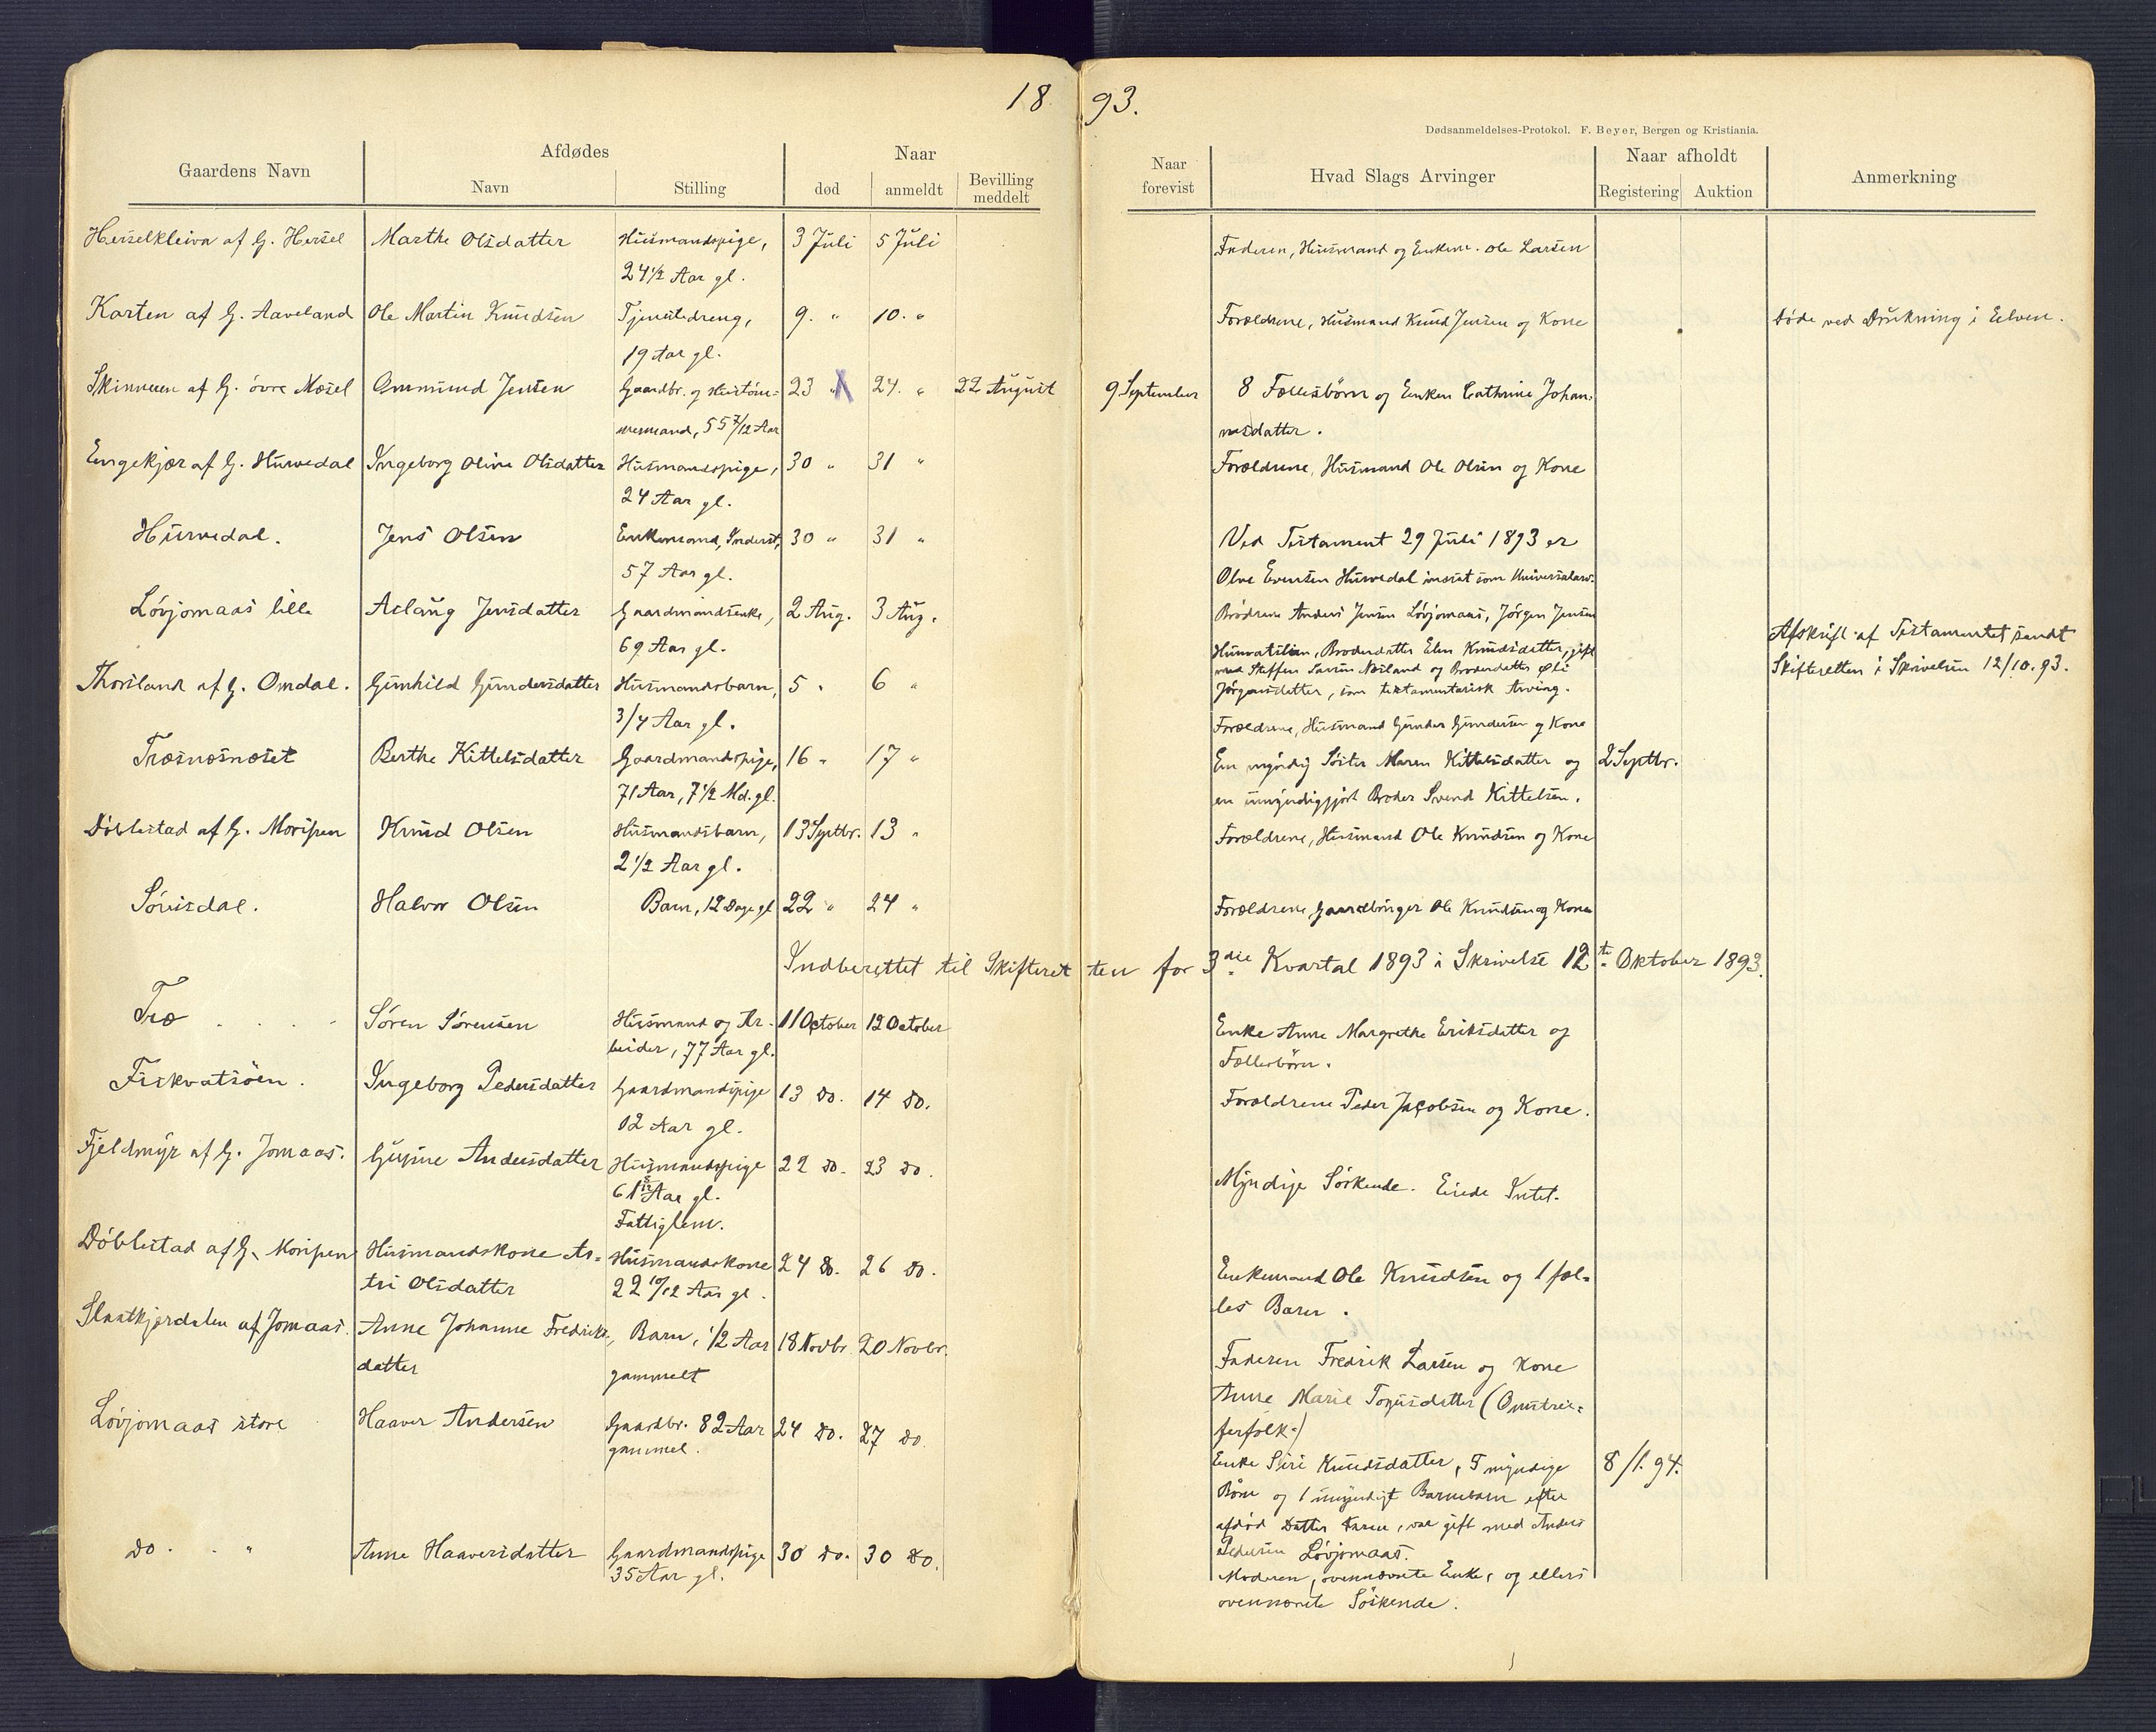 18 93.
Dødsanmeldelses-Protokol. F. Beyer, Bergen og Kristiania.
Gaardens Navn
Afdødes
Navn
Stilling
Naar
død
anmeldt
Bevilling meddelt
Naar forevist
Hvad Slags Arvinger
Naar afholdt
Registering
Auktion
Anmerkning
Herselkleiva af G. Hersel Marthe Olsdatter Husmandspige, 3 Juli 5 Juli Faderen, Husmand og Enkem. Ole Larsen
24 1/2 Aar gl.
Karten af G. Aaveland Ole Martin Knudsen Tjenstedreng, 9. " 10. " Forældrene, Husmand Knud Jensen og Kone Døde ved Drukning i Elven.
19 Aar gl.
af G. övre Mæsel Ommund Jensen Gaardbr. og 23 " 24. " 22 August 9 September 8 Fællesbörn og Enken Cathrine Johan-
55 7/12 Aar nesdatter.
Engekjær af G. Hurvedal Ingeborg Oline Olsdatter Husmandspige, 30 " 31 " Forældrene, Husmand Ole Olsen og Kone
24 Aar gl.
Hurvedal. Jens Olsen Enkemand, Inderst, 30 " 31 " Ved Testament 29 Juli 1893 er
57 Aar gl. Olve Evensen Hurvedal insat som Universalarv.
Lövjomaas lille Aslaug Jensdatter Gaardmandsenke, 2 Aug. 3 Aug. Brödrene Anders Jensen Lövjomaas, Jörgen Jensen
69 Aar gl. Broderdatter Elen Knudsdatter, gift Afskrift af Testamentet sendt
Thorsland af G. Omdal. Gunhild Gundersdatter Husmandsbarn, 5 " 6 " med Steffen og Broderdatter Skifteretten i Skrivelse 12/10. 93.
Jörgensdatter, som testamentarisk Arving.
3/4 Aar gl. Forældrene, Husmand Gunder Gundersen og Kone
Træsnæsnæset Berthe Kittelsdatter Gaardmandspige, 16 " 17 " En myndig Söster Maren Kittelsdatter og 2 Septbr.
71 Aar, 7 1/2 Md. gl. en umyndiggjort Broder Svend Kittelsen.
Döblestad af G. Moripen Knud Olsen Husmandsbarn, 13 Septbr. 13 " Forældrene, Husmand Ole Knudsen og Kone
2 1/2 Aar gl.
Sövisdal. Halvor Olsen Barn, 12 Dage gl 22 " 24 " Forældrene, Gaardbruger Ole Knudsen og Kone
Indberettet til Skifteretten for 3die Kvartal 1893 i Skrivelse 12te Oktober 1893.
Træ Sören Sörensen Husmand og Ar- 11 October 12 October Enke Anne Margrethe Eriksdatter og
beider, 77 Aar gl. Fællesbörn.
Fiskvatsöen. Ingeborg Pedersdatter Gaardmandspige 13 do. 14 do. Forældrene Peder Jacobsen og Kone.
12 Aar gl.
Fjeldmyr af G. Jomaas. Gusine Andersdatter Husmandspige 22 do. 23 do. Myndige Söskende. Eiede Intet.
61 Aar gl.
Fattiglem.
Döblestad af G. Moripen Husmandskone As- Husmandskone 24 do. 26 do. Enkemand Ole Knudsen og 1 fæl-
tri Olsdatter 22 10/12 Aar gl. les Barn.
af Jomaas. Anne Johanne Fredriks- Barn, 1/2 Aar 18 Novbr. 20 Novbr. Faderen Fredrik Larsen og Kone
datter gammelt Anne Marie (Omstrei-
ferfolk.)
Lövjomaas store Haaver Andersen Gaardbr. 82 Aar 24 do. 27 do. Enke Siri Knudsdatter, 5 myndige 8/1. 94.
gammel. Börn og 1 umyndigt Barnebarn efter
afdöd Datter Karen, var gift med Anders
Pedersen Lövjomaas.
do. " Anne Haaversdatter Gaardmandspige 30 do. 30 do. Moderen, ovennævnte Enke, og ellers
35 Aar gl. ovennævnte Söskende.